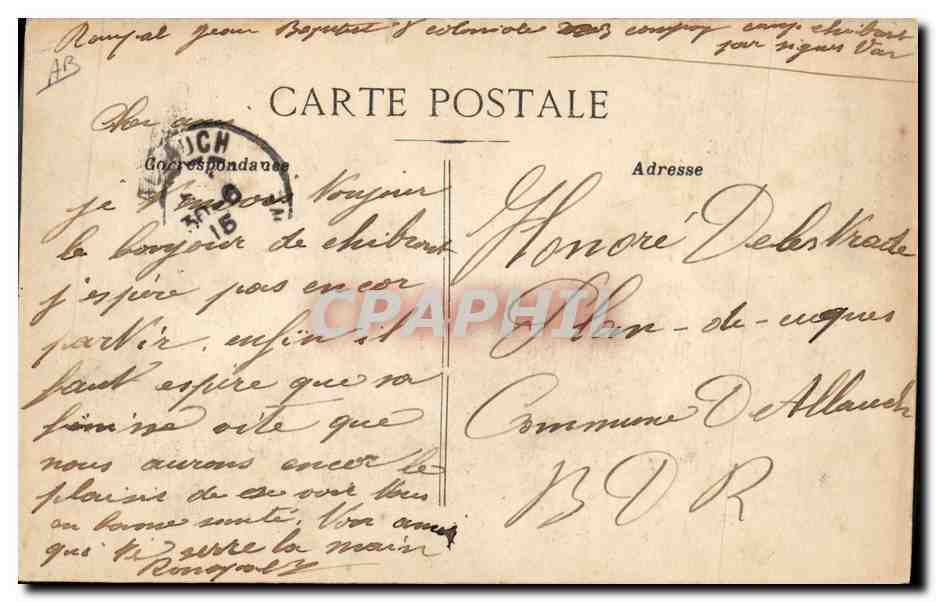 Roupal Jean Baptiste 8 coloniale compag camp chibront
par signes Var
AB
CARTE POSTALE
Cher ami
UCH
30 6
15
Correspondance
Adresse
je t'envoi toujour
le bonjour de chibront
j'espère pas encor
partir. enfin il
faut espere que sa
finisse vite que
nous aurons encor le
plaisir de se voir tous
en bonne santé. Ton ami
qui ti serre la main
Roupal
Honoré Delestrade
Plan-de-cuques
Commune D Allauch
B D R
CPAPHIL